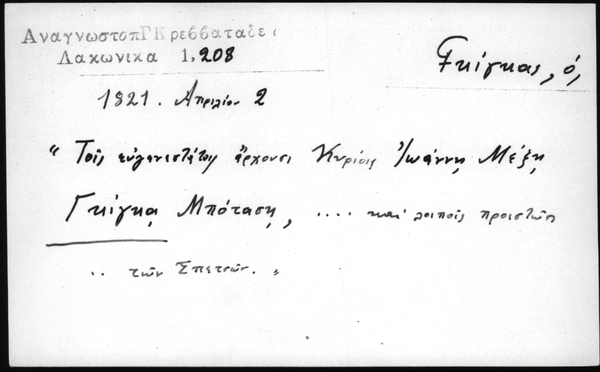 ΑναγνωστοπΓΚρεββαταδε
Λακωνικα 1, 208
Γκίγκας, ὁ,
1821. Ἀπριλίου 2
" Τοῖς εὐγενεστάτοις ἄρχουσι Κυρίοις Ἰωάννῃ Μέξῃ
Γκίγκᾳ Μπότασῃ, .... καὶ λοιποῖς προεστῶσι
.. τῶν Σπετσῶν. "